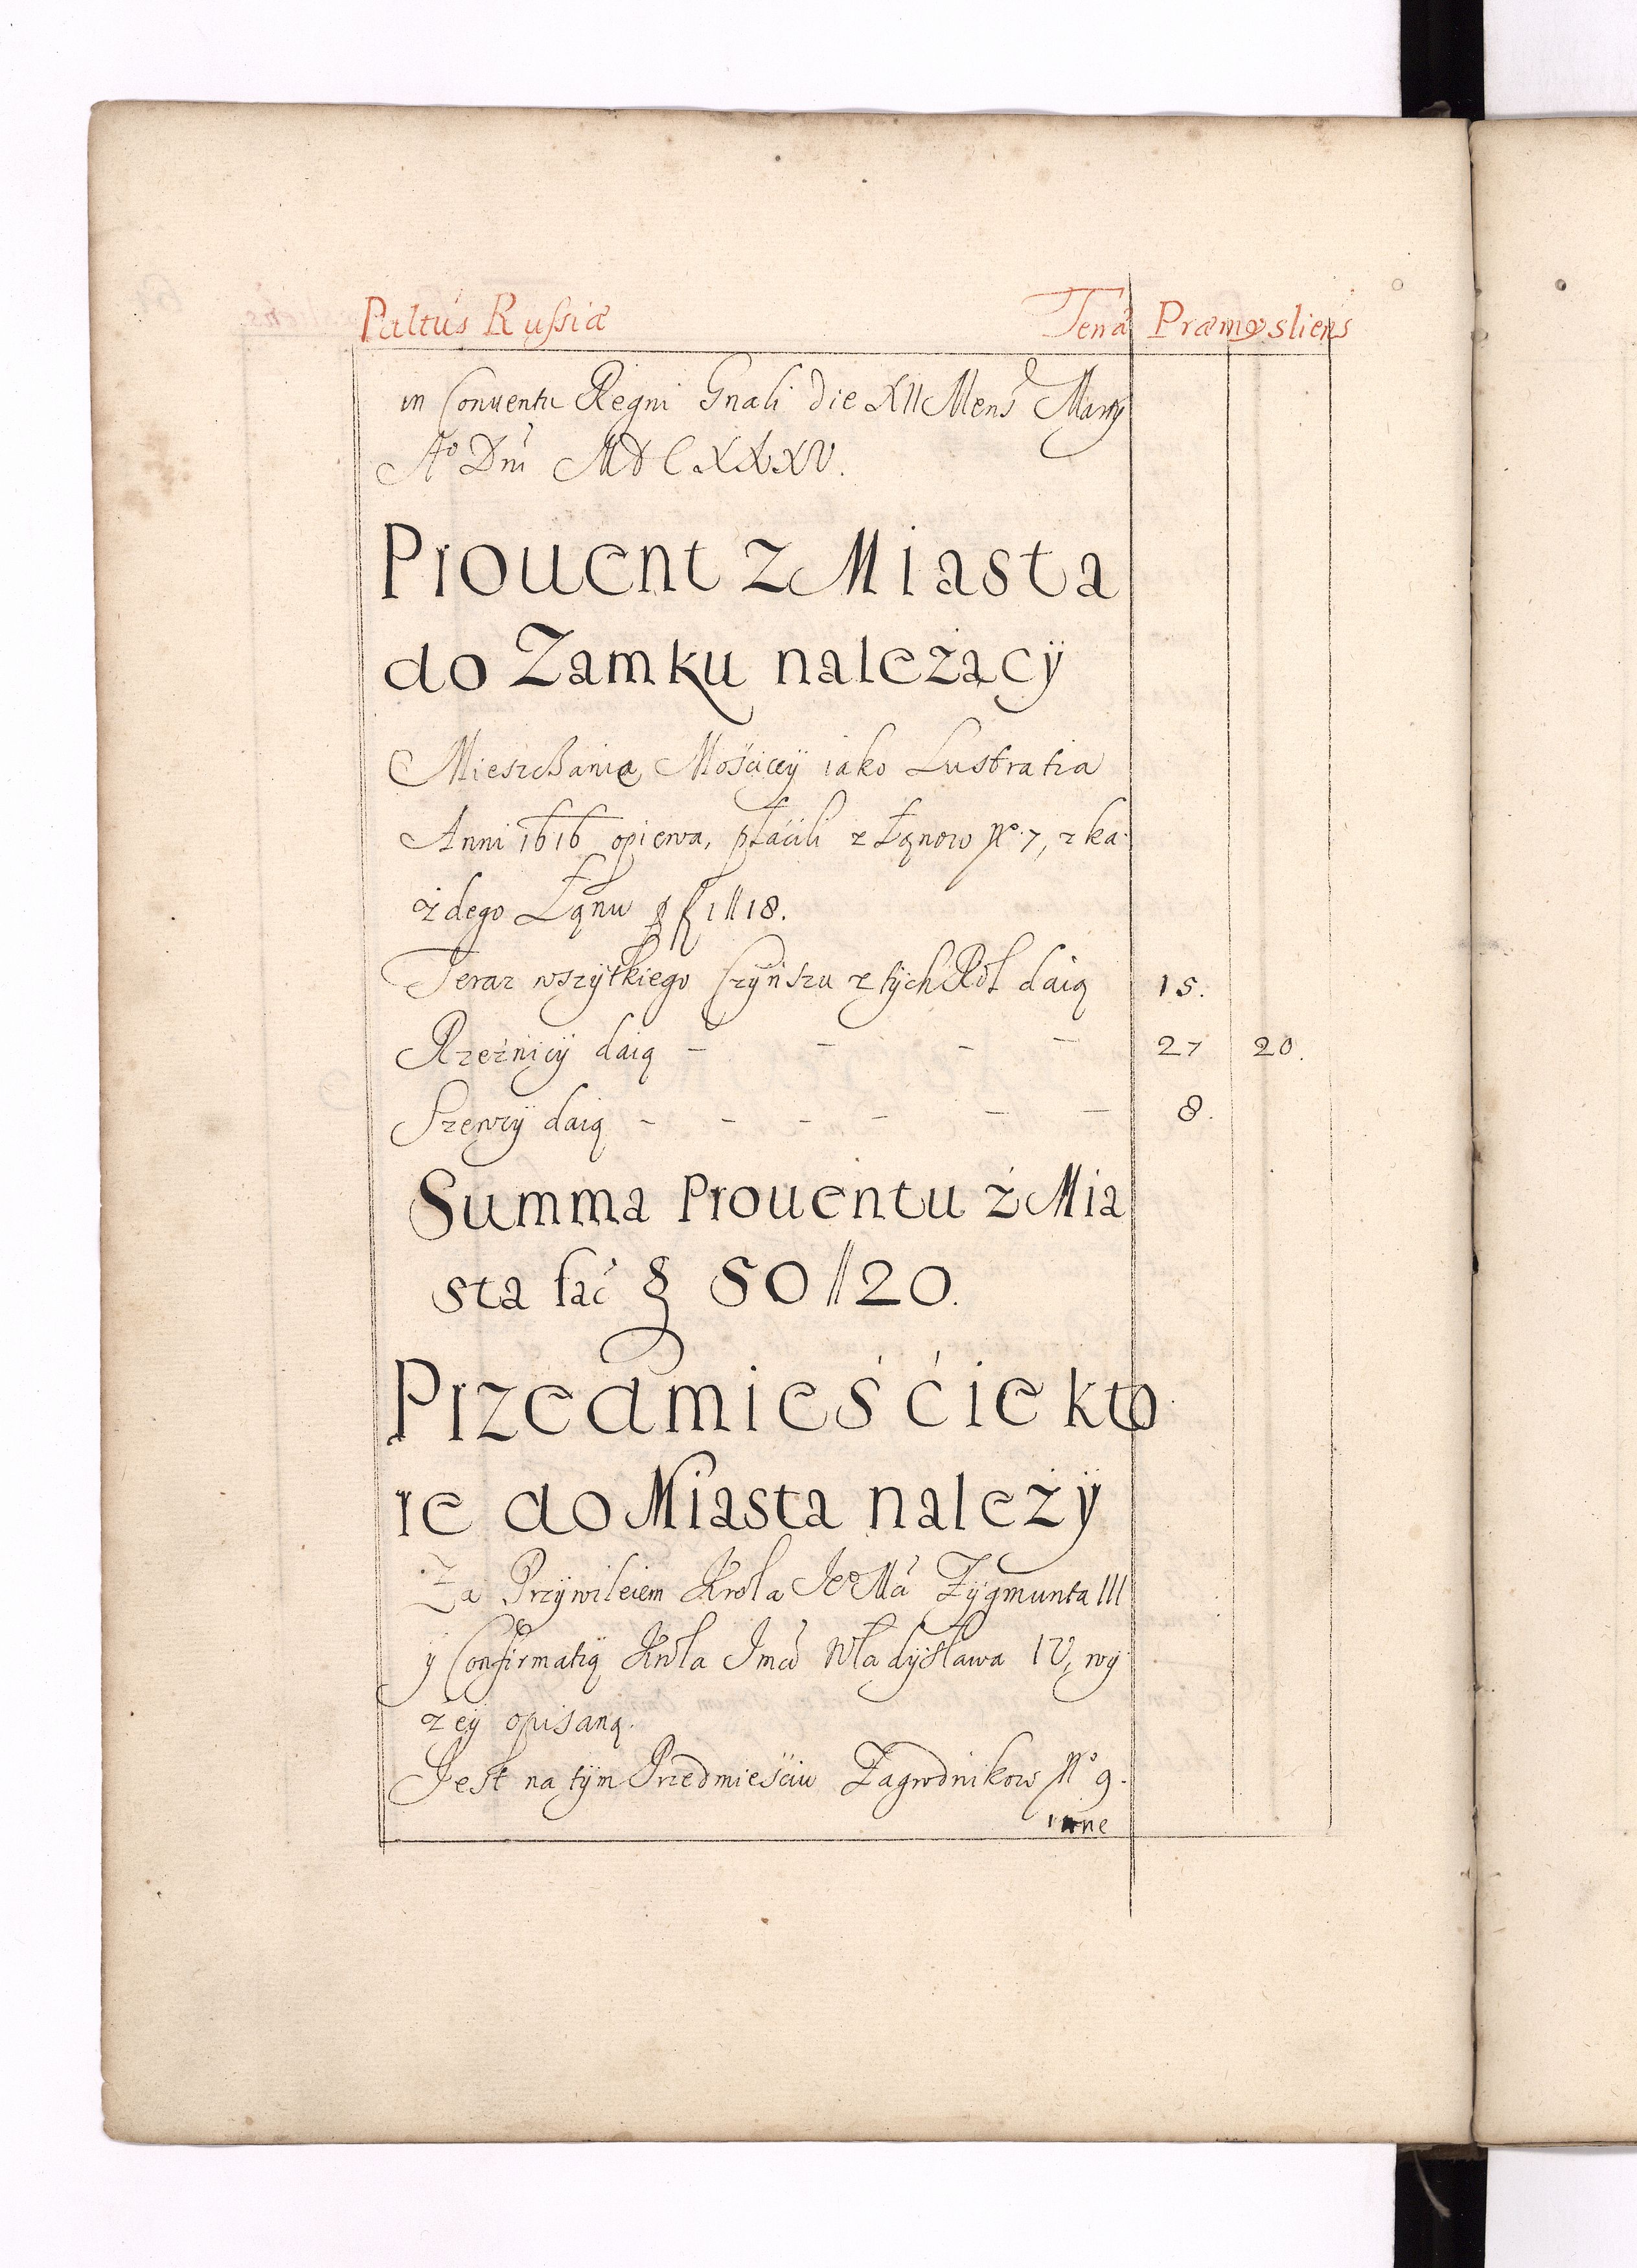 Paltus Russiæ Terra Præmysliens
in Conuentu Regni Gnali die XII Mens Marty
Aº Dni MDCXXXV.
Prouent z Miasta
do Zamku należący
Mieszczanie Mościccy iako Lustratia
Anni 1616 opiewa, płacili z Łąnow Nº 7, z ka
żdego Łąnu 1//18.
Teraz wszytkiego Czynszu z tych Rol daią 15.
Rzeżnicy daią - - - - 27 20.
Szewcy daią - - - - - - 8.
Summa Prouentu z Mia
sta fać 50//20.
Przedmieśćie kto
re do Miasta należy
Za Przywileiem Krola Jeº Mci Zygmunta III
y Confirmatią Krola Jmci Władysława IV, wy
żey opisaną.
Jest na tym Przedmieściu Zagrodnikow Nº 9.
inne